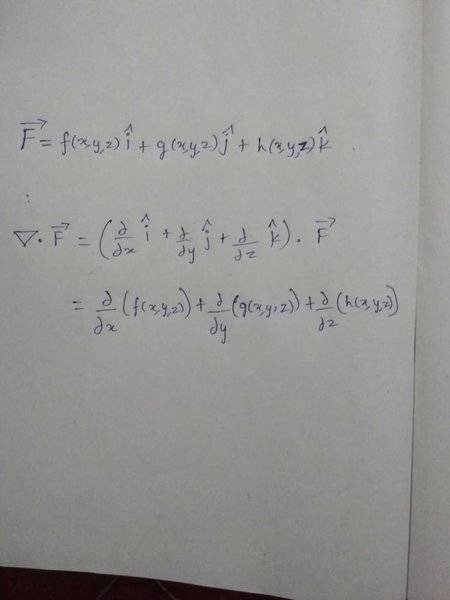 F⃗ = f(x,y,z) î + g(x,y,z) ĵ + h(x,y,z) k̂ .
:
∇· F⃗ = (∂/∂x î + ∂/∂y ĵ + ∂/∂z k̂) · F⃗
= ∂/∂x (f(x,y,z)) + ∂/∂y (g(x,y,z)) + ∂/∂z (h(x,y,z))